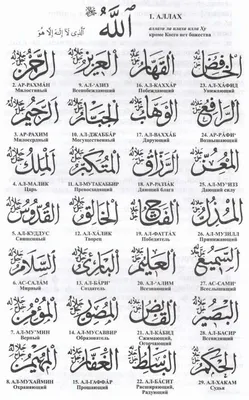 الله
الذي لا إله إلا هو
1. АЛЛАХ
аллази ла илаха илла Ху
кроме Коего нет божества
الرحمن العزيز القهار الخافض
2. АР-РАХМАН 9. АЛ-'АЗИЗ 16. АЛ-КАХХАР 23. АЛ-ХАФИД
Милостивый Унижающий
الرحيم الجبار الوهاب الرافع
3. АР-РАХИМ 10. АЛ-ДЖАББАР 17. АЛ-ВАХХАБ 24. АР-РАФИ'
Милосердный Могущественный Дарующий
الملك المتكبر الرزاق المعز
4. АЛ-МАЛИК 11. АЛ-МУТАКАББИР 18. АР-РАЗЗАК 25. АЛ-МУ'ИЗЗ
Царь Превосходящий Дающий блага Дающий силу
القدوس الخالق الفتاح المذل
5. АЛ-КУДДУС 12. АЛ-ХАЛИК 19. АЛ-ФАТТАХ 26. АЛ-МУЗИЛЛ
Священный Творец Победитель Принижающий
السلام البارئ العليم السميع
6. АС-САЛАМ 13. АЛ-БАРИ' 20. АЛ-'АЛИМ 27. АС-САМИ'
Мирный Создатель Всезнающий Всеслышащий
المؤمن المصور القابض البصير
7. АЛ-МУ'МИН 14. АЛ-МУСАВВИР 21. АЛ-КАБИД 28. АЛ-БАСИР
Верный Образователь Сжимающий, Всевидящий
المهيمن الغفار الباسط الحكم
8. АЛ-МУХАЙМИН 15. АЛ-ГАФФАР 22. АЛ-БАСИТ 29. АЛ-ХАКАМ
Охраняющий Прощающий Расширяющий, Судья
Радующий